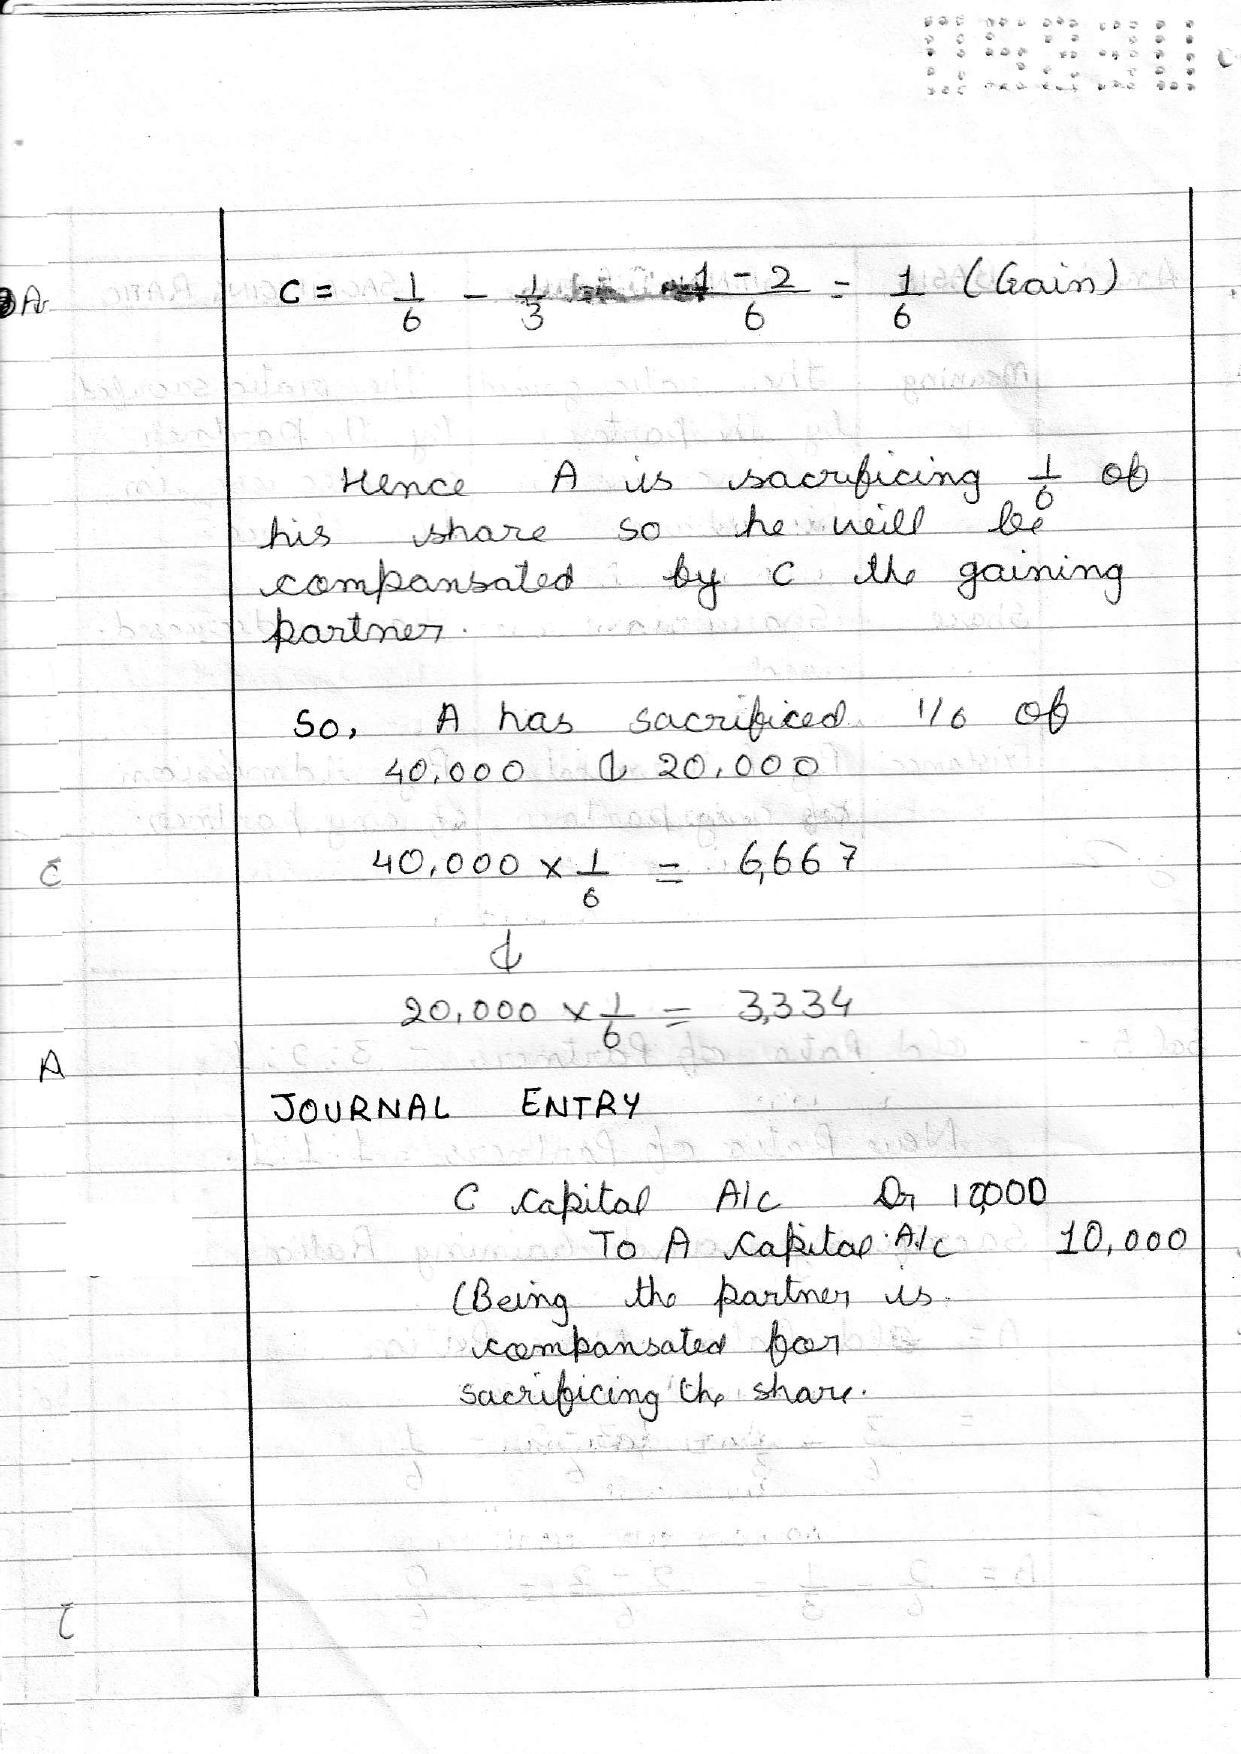 C = 1/6 - 1/3 = 1-2/6 = 1/6 (Gain)
Hence A is sacrificing 1/6 of
his share so he will be
compansated by C the gaining
partner.
So, A has sacrificed 1/6 of
40,000 & 20,000
40,000 × 1/6 = 6,667
&
20,000 × 1/6 = 3,334
JOURNAL ENTRY
C Capital A/c Dr 10,000
To A Capital A/c 10,000
(Being the partner is
compansated for
sacrificing the share.